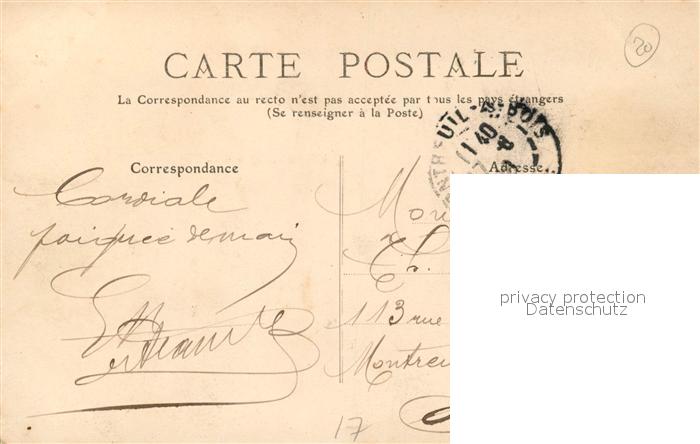 20
CARTE POSTALE
La Correspondance au recto n'est pas acceptée par tous les pays étrangers
(Se renseigner à la Poste)
Correspondance
Adresse
Cordiale
poignée de main
113 rue
Montreu
17
privacy protection
Datenschutz